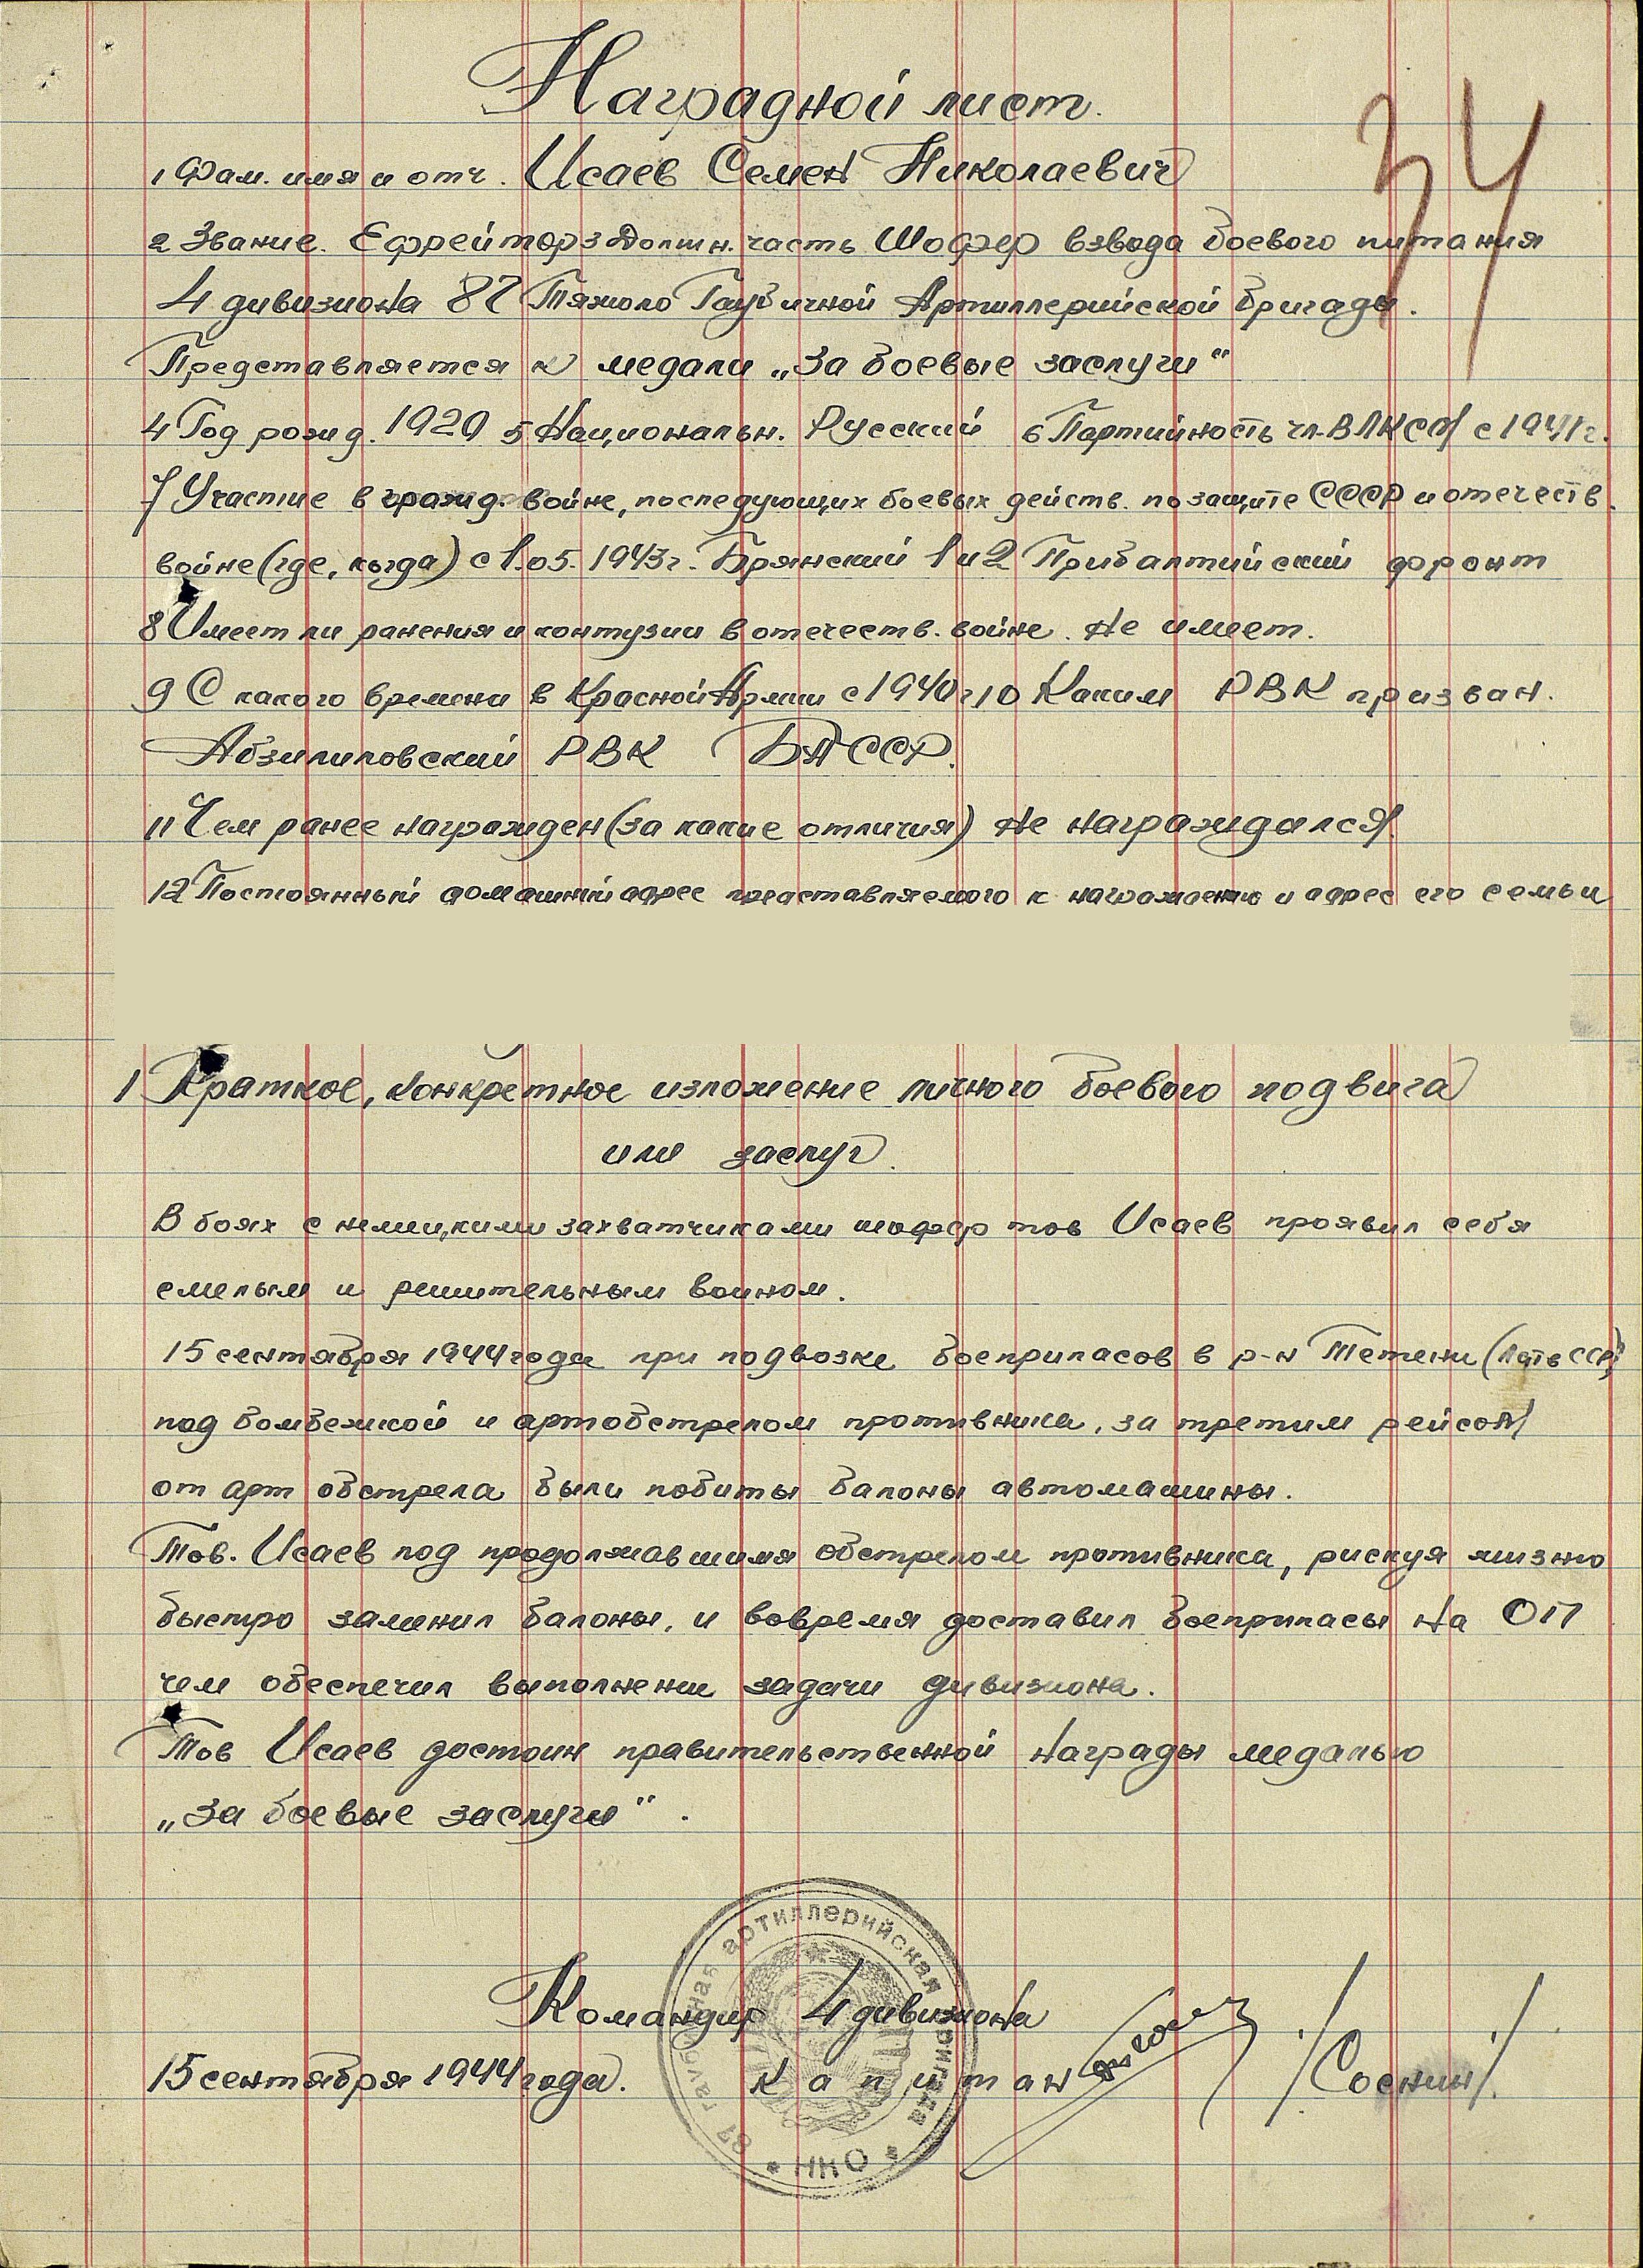 Наградной лист.
34
1 Фам. имя и отч. Исаев Семен Николаевич
2 Звание. Ефрейтор 3 Должн. часть Шофер взвода боевого питания
4 дивизиона 87 Тяжоло Гаубичной Артиллерийской бригады.
Представляется к медали „За боевые заслуги"
4 Год рожд. 1920 5 Национальн. Русский 6 Партийность чл. ВЛКСМ с 1941 г.
7 Участие в гражд. войне, последующих боевых действ. по защите СССР и отечеств.
войне (где, когда) с 1.05.1943 г. Брянский 1 и 2 Прибалтийский фронт
8 Имеет ли ранения и контузии в отечеств. войне. Не имеет.
9 С какого времени в Красной Армии с 1940 г 10 Каким РВК призван.
Абзилиловский РВК БАССР.
11 Чем ранее награжден (за какие отличия) Не награждался.
12 Постоянный домашний адрес представляемого к награждению и адрес его семьи
1 Краткое, конкретное изложение личного боевого подвига
или заслуг.
В боях с немецкими захватчиками шофер тов Исаев проявил себя
смелым и решительным воином.
15 сентября 1944 года при подвозке боеприпасов в р-н Тетени (Латв ССР)
под бомбежкой и артобстрелом противника, за третим рейсом
от арт обстрела были побиты балоны автомашины.
Тов. Исаев под продолжавшимя обстрелом противника, рискуя жизню
быстро заменил балоны, и вовремя доставил боеприпасы на ОП
чем обеспечил выполнении задачи дивизиона.
Тов Исаев достоин правительственной награды медалью
„За боевые заслуги".
Командир 4 дивизиона
15 сентября 1944 года. Капитан /Соснин/.
87 гаубичная артиллерийская бригада
НКО